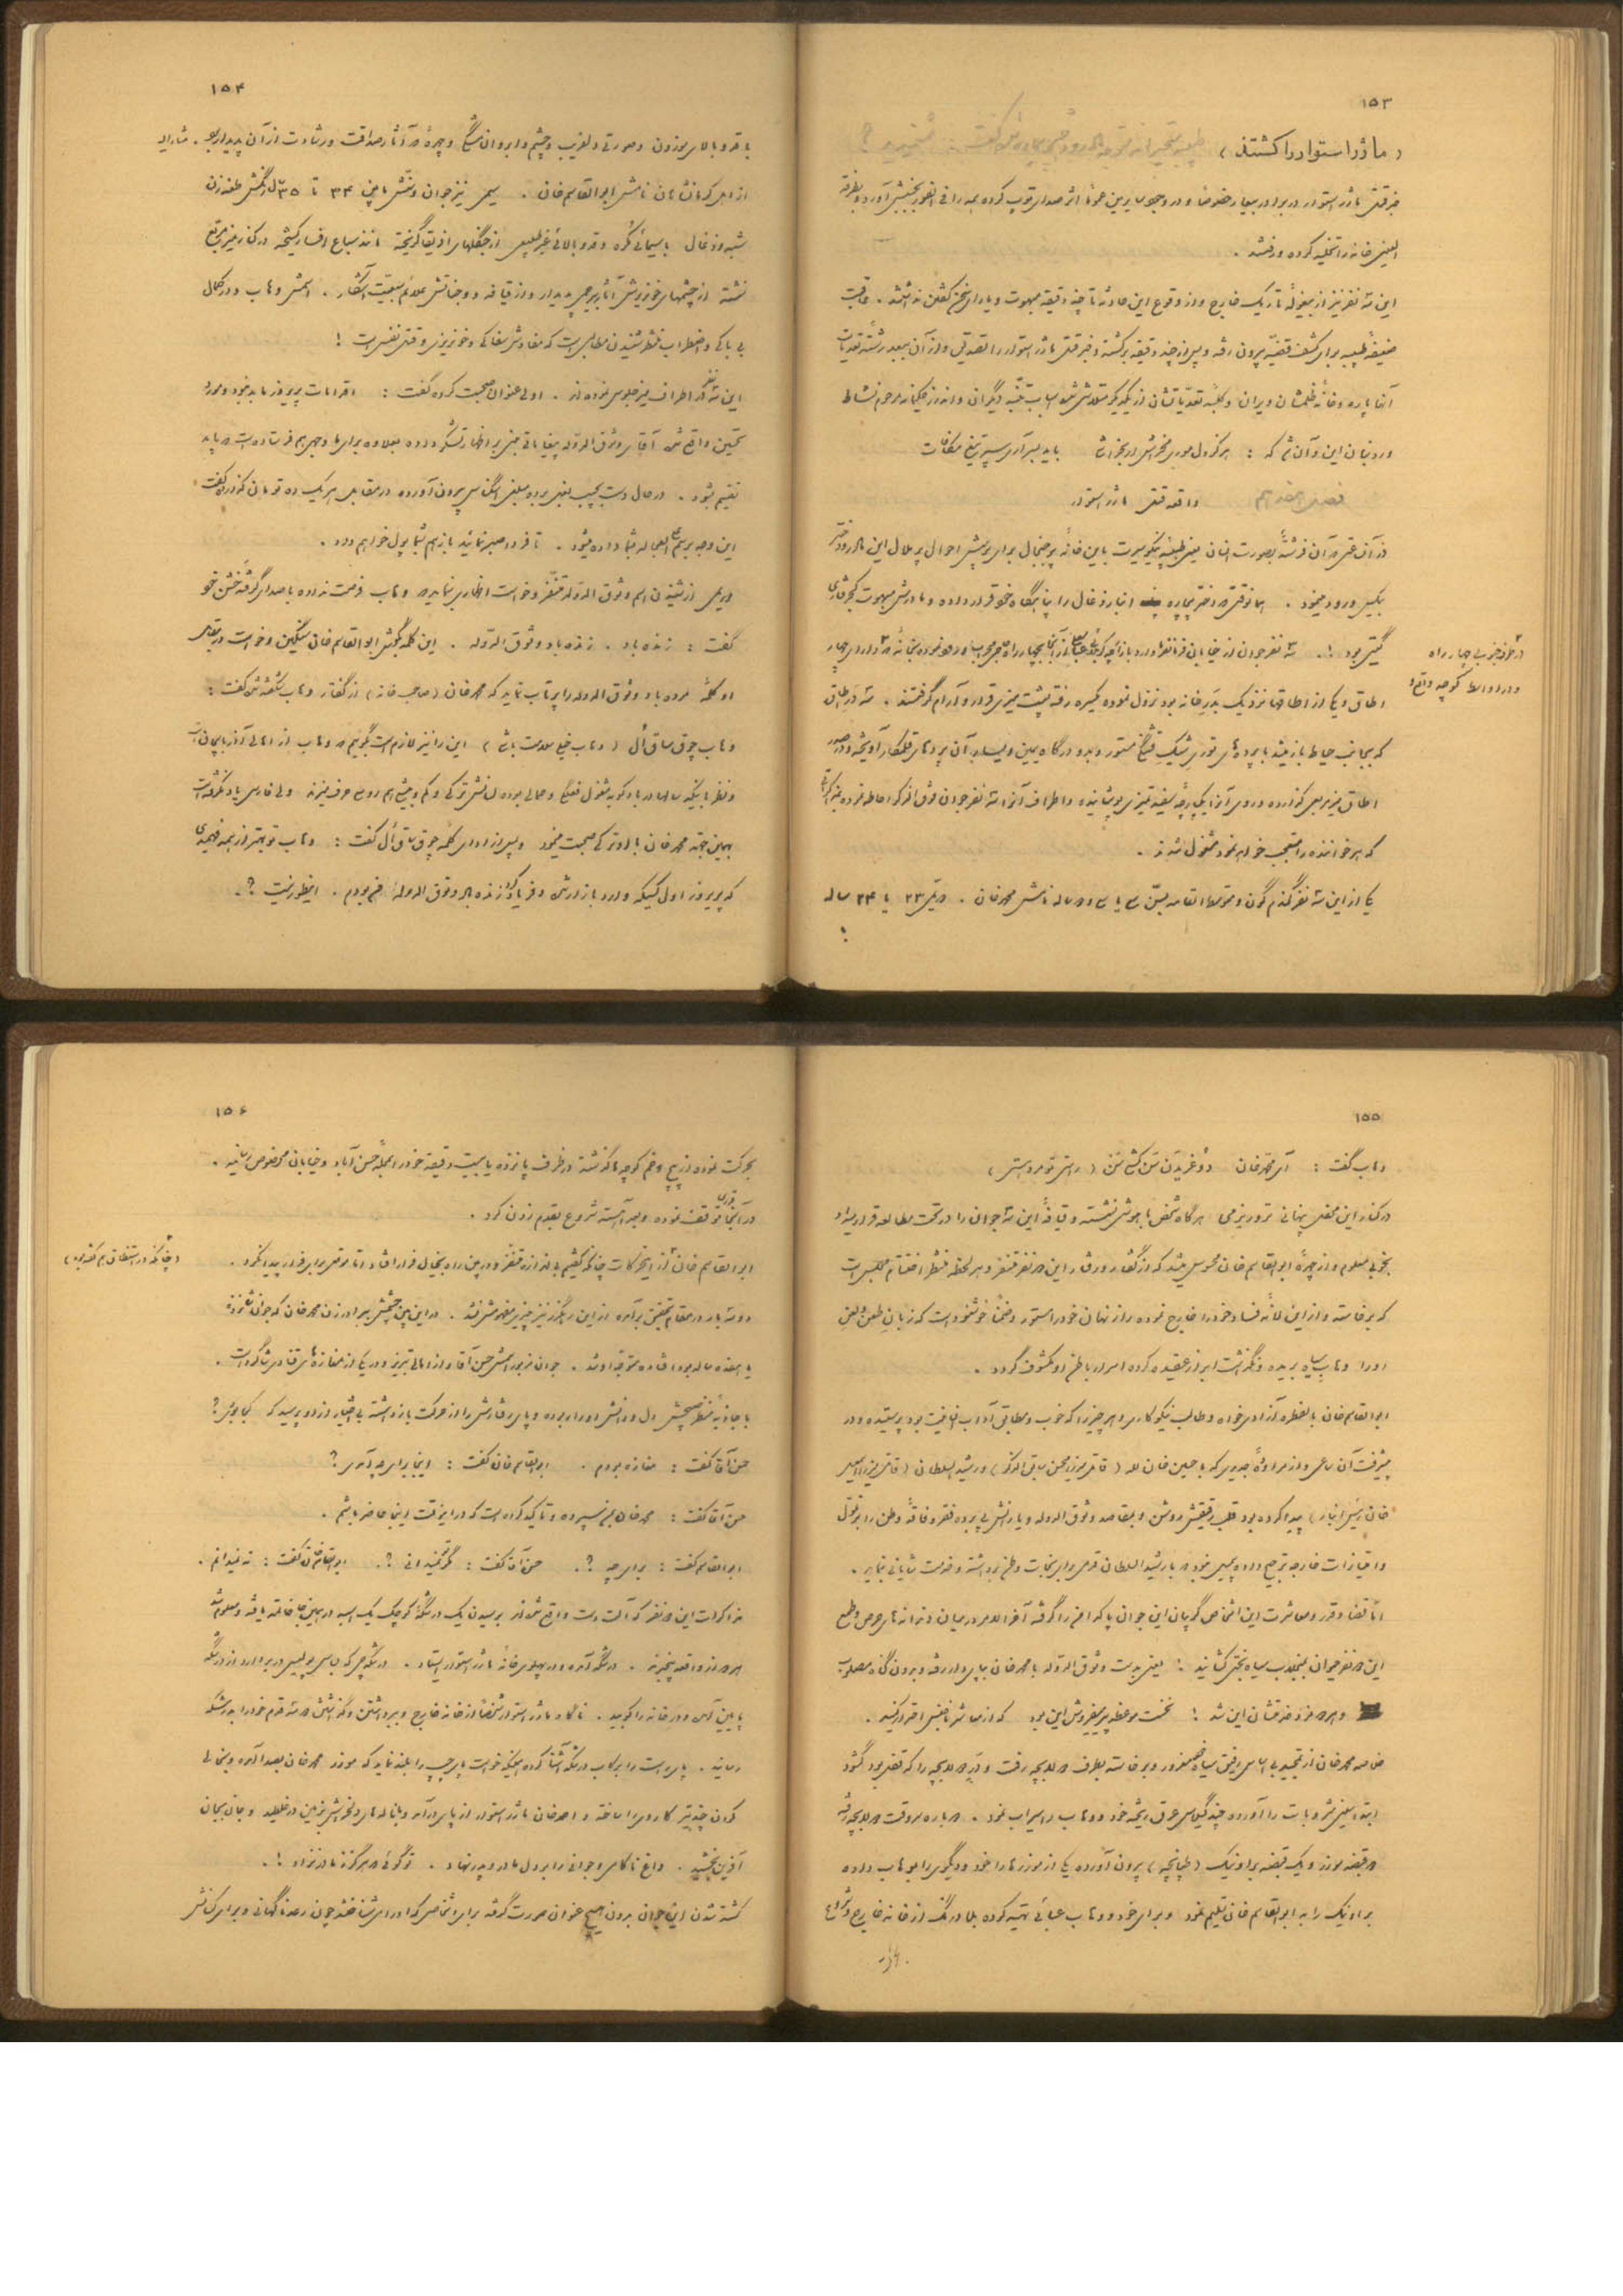 ۱۵۳
( ماژر استوار را کشتند )
خبر قتل ماژر استوار در برادر بیمار خصوصاً و در وجود سایرین عموماً اثر صدای توپ کرده همه را فی الفور بجنبش آورد و بطرفة
العینی خانه را تخلیه کرده و رفتند .
این سه نفر نیز از بیغولهٔ تاریک خارج و از وقوع این حادثه تا چند دقیقه مبهوت و یارای سخن گفتن نداشتند . عاقبت
ضعیفه برای کشف قضیه بیرون رفته و پس از چند دقیقه برگشته و خبر قتل ماژر استوار را تصدیق و از آن ببعد رشته تعدیات
آنها پاره و خانهٔ ظلمشان ویران و کلبهٔ تعدیاتشان از یکدیگر متلاشی شده اسباب تنبّه دیگران و اندرز حکیمانه مرحوم نشاط
ورد زبان این و آن شد که : هر کو دل موری بخراشد باید بسر آری سپر تیغ مکافات
فصل هفدهم واقعه قتل ماژر استوار
در آن وقتی که آن فرشتهٔ بصورت انسان یعنی طبیبهٔ نیکو سیرت باین خانهٔ پر جنجال برای پرسش احوال پر ملال این مادر و دختر
بیکس ورود مینمود . همانوقتی که دختر بیچاره انبار ذغال را پناهگاه خود قرار داده و مادرش مبهوت کجرفتاری
گیتی بود !. سه نفر جوان از خیابان فرمانفرما وارد بازارچه
در طرف غربی چهار راه
اطاق و یکی از اطاقها نزدیک بدر خانه بود نزول نموده یکسره رفته پشت میزی قرار و آرام گرفتند .
که بجانب حیاط باز میشد با پرده های توری شیک قشنگ مستور و بدو درگاه یمین و یسار آن پرده های قلمکار آویخته و در صدر
اطاق میز مربعی گذارده و روی آنرا یکپارچه سفید تمیزی پوشانیده و اطراف آنرا سه نفر جوان فوق الذکر احاطه نموده
که هر خواننده را متعجب خواهد نمود مشغول شدند .
یکی از این سه نفر گندم گون و متوسط القامه بسن سی یا سی و دو ساله نامش محمد خان . دیگری ۲۳ یا ۲۴ ساله
۱۵۴
با قد و بالای موزون و صورتی دلفریب و چشم و ابروان مشکی و چهرهٔ که آثار صداقت و رشادت از آن پدیدار بود .
از اهل کرمانشاهان نامش ابوالقاسم خان . سیمی نیز جوان و سنّش مابین ۳۴ تا ۳۵ سال رنگش طعنه زن
شبه و ذغال با سیمائی مکره و قد و بالائی غیر طبیعی از جنگلهای افریقا گریخته مانند سباع افسار گسیخته در کنار میز مربع
نشسته از چشمهای خونریزش آثار بیرحمی پدیدار و از قیافه و وجناتش علائم سبعیت آشکار . اسمش وهاب و در کمال
بی باکی و اضطراب منتظر شنیدن مطالبی است که مفادش سفاکی و خونریزی و قتل نفس است !
این سه نفر که در اطراف میز جلوس نموده اند . اولی عنوان صحبت کرده گفت : اقدامات پریروز ما بد نبود و مورد
تحسین واقع شد آقای وثوق الدوله پیغاماتی مبنی بر اظهار تشکر داده بعلاوه برای ما وجهی هم فرستاده است که باید
تقسیم شود . در حال دست بجیب بغل برده مبلغی اسکناس بیرون آورده در مقابل هر یک ده تومان گذارده گفت
این وجه برسم علی العجاله بشما داده میشود . تا فردا صبر نمائید باز هم بشما پول خواهم داد .
دومی از شنیدن اسم وثوق الدوله متنفر و خواست اظهاری نماید که وهاب فرصت نداده با صدای گرفته خشن خود
گفت : زنده باد . زنده باد وثوق الدوله . این کلمه بگوش ابوالقاسم خان سنگین و خواست در مقابل
او کلمهٔ مرده باد وثوق الدوله را پرتاب نماید که محمد خان ( صاحب خانه ) از گفتار وهاب شگفتش گفت :
وهاب چوق ساق اُل ( وهاب خیلی سلامت باش ) این را نیز لازم است بگوئیم که وهاب از اهالی آذربایجان است
و نظر باینکه سالها در بادکوبه مشغول فعلگی و حمالی بوده لسانش ترکی و کم و بیش هم روسی حرف میزند ولی فارسی یاد نگرفته است
بهمین جهة محمد خان با او ترکی صحبت مینمود و پس از ادای کلمهٔ چوق ساق اُل گفت : وهاب تو بهتر از همه فهمیدی
که پریروز اول کسیکه وارد بازار شد و فریاد کرد زنده باد وثوق الدوله من بودم . اینطور نیست ؟.
۱۵۵
وهاب گفت : آی محمد خان دوغری دَن سَن کشی سَن ( راستی تو مردستی )
در کنار این محفل پنهانی تروریزمی هر گاه شخص باهوشی نشسته و قیافهٔ این سه جوان را در تحت مطالعه قرار میداد
بخوبی معلوم و از چهرهٔ ابوالقاسم خان محسوس میشد که از گفتار و رفتار این دو نفر متنفر و هر لحظه منتظر اختتام مجلس است
که برخاسته و از این لانهٔ فساد خود را خارج نموده راز نهان خود را مستور و ضمناً خوشنود است که زبان طعن و لعن
او را وهاب سیاه بریده و نگذاشت ابراز عقیده کرده اسرار باطنی او مکشوف گردد .
ابوالقاسم خان بالفطره آزادی خواه و طالب نیکوکاری و هر چیز را که خوب و مطابق آداب انسانیت بود پسندیده و در
پیشرفت آن ساعی و از مراودهٔ جدیدی که با حسین خان لله ( قاتل میرزا محسن سابق الذکر ) و رشید السلطان ( قاتل میرزا اسمعیل
خان رئیس انبار ) پیدا کرده بود قلب رقیقش روشن و بمقاصد وثوق الدوله و یارانش پی برده فقر و فاقهٔ وطن را بر تموّل
و امتیازات خارجه ترجیح داده
امّا قضا و قدر و معاشرت این اشخاص گریبان این جوان پاکدامن را گرفته آخر الامر در میان دندانه های حرص و طمع
این دو نفر حیوان
و هر دو مزد خدمتشان این شد ! نخست موعظه پیر میفروش این بود که از معاشر ناجنس احتراز کنید .
خلاصه محمد خان از تمجید بی اساس رفیق سیاه خود مغرور و برخاسته بطرف دولابچه رفت و درب دولابچه را که قفل بود گشود
ابتدا بعضی مشروبات را آورده چند گیلاس عرق ریخته خود و وهاب را سیراب نمود . دوباره سر وقت دولابچه رفته
دو قبضه موزر و یک قبضه براونیک ( طپانچه ) بیرون آورده یکی از موزرها را خود و دیگری را به وهاب داده
براونیک را به ابوالقاسم خان تسلیم نمود و برای خود و وهاب عبائی تهیه کرده بلا درنگ از خانه خارج و شروع
۱۵۶
بحرکت نموده از پیچ و خم کوچه ها گذشته در ظرف پانزده یا بیست دقیقه خود را بمحلهٔ حسن آباد و خیابان مخصوص رسانید .
در آنجا قدری توقف نموده و سپس آهسته شروع بقدم زدن کرد .
ابوالقاسم خان از این حرکات چنانکه گفتیم بی اندازه متنفر و در بین راه بخیال فرار افتاد اما موقعی برای فرار پیدا نکرد .
( چنانکه در استنطاق هم گفته بود )
دو سه بار در مقام تحقیق برآمد از این رهگذر نیز چیزی مفهوم نشد . در این بین چشمش ببرادر زن محمد خان که جوانی شانزده
یا هفده ساله بود افتاده متوجه او شد . جوان مزبور اسمش حسن آقا و از اهالی تبریز و در یکی از مغازه های قنادی شاگرد است .
حسن آقا گفت : مغازه بودم . ابوالقاسم خان گفت : اینجا برای چه آمدی ؟
حسن آقا گفت : محمد خان بمن سپرده و تاکید کرده است که در اینوقت اینجا حاضر باشم .
ابوالقاسم گفت : برای چه ؟. حسن آقا گفت : مگر نمیدانی ؟. ابوالقاسم خان گفت : نه نمیدانم .
مذاکرات این دو نفر که آلت دست واقع شده اند برسیدن یک درشکهٔ کوچک یک اسبه در همین جا خاتمه یافته و معلوم شد
هر دو از واقعه بیخبرند . درشکه آمده و در پهلوی خانهٔ ماژر استوار ایستاد . درشکه چی که لباس پولیس در بر دارد از درشکه
پایین آمده و در خانه را کوبید . ناگاه ماژر استوار شخصاً از خانه خارج و ببرداشتن و گذاشتن دو سه قدم خود را بدرشکه
رسانید . پای راست را برکاب درشکه آشنا کرده همینکه خواست پای چپ را بلند نماید که موزر محمد خان بصدا آمده و
کردن چند تیر کار وی را ساخته و احمد خان ماژر استوار از پای در آمد و با ناله های دلخراش بزمین در غلطید و جان بجان
آفرین بخشید . داغ ناکامی و جوانی را بر دل مادر و پدر نهاد . تو گوئی که هرگز ز مادر نزاد !.
کشته شدن این جوان بدون هیچ عنوان صورت گرفته برای اشخاصی که او را می شناختند چون رعد ناگهانی و برای کسانش